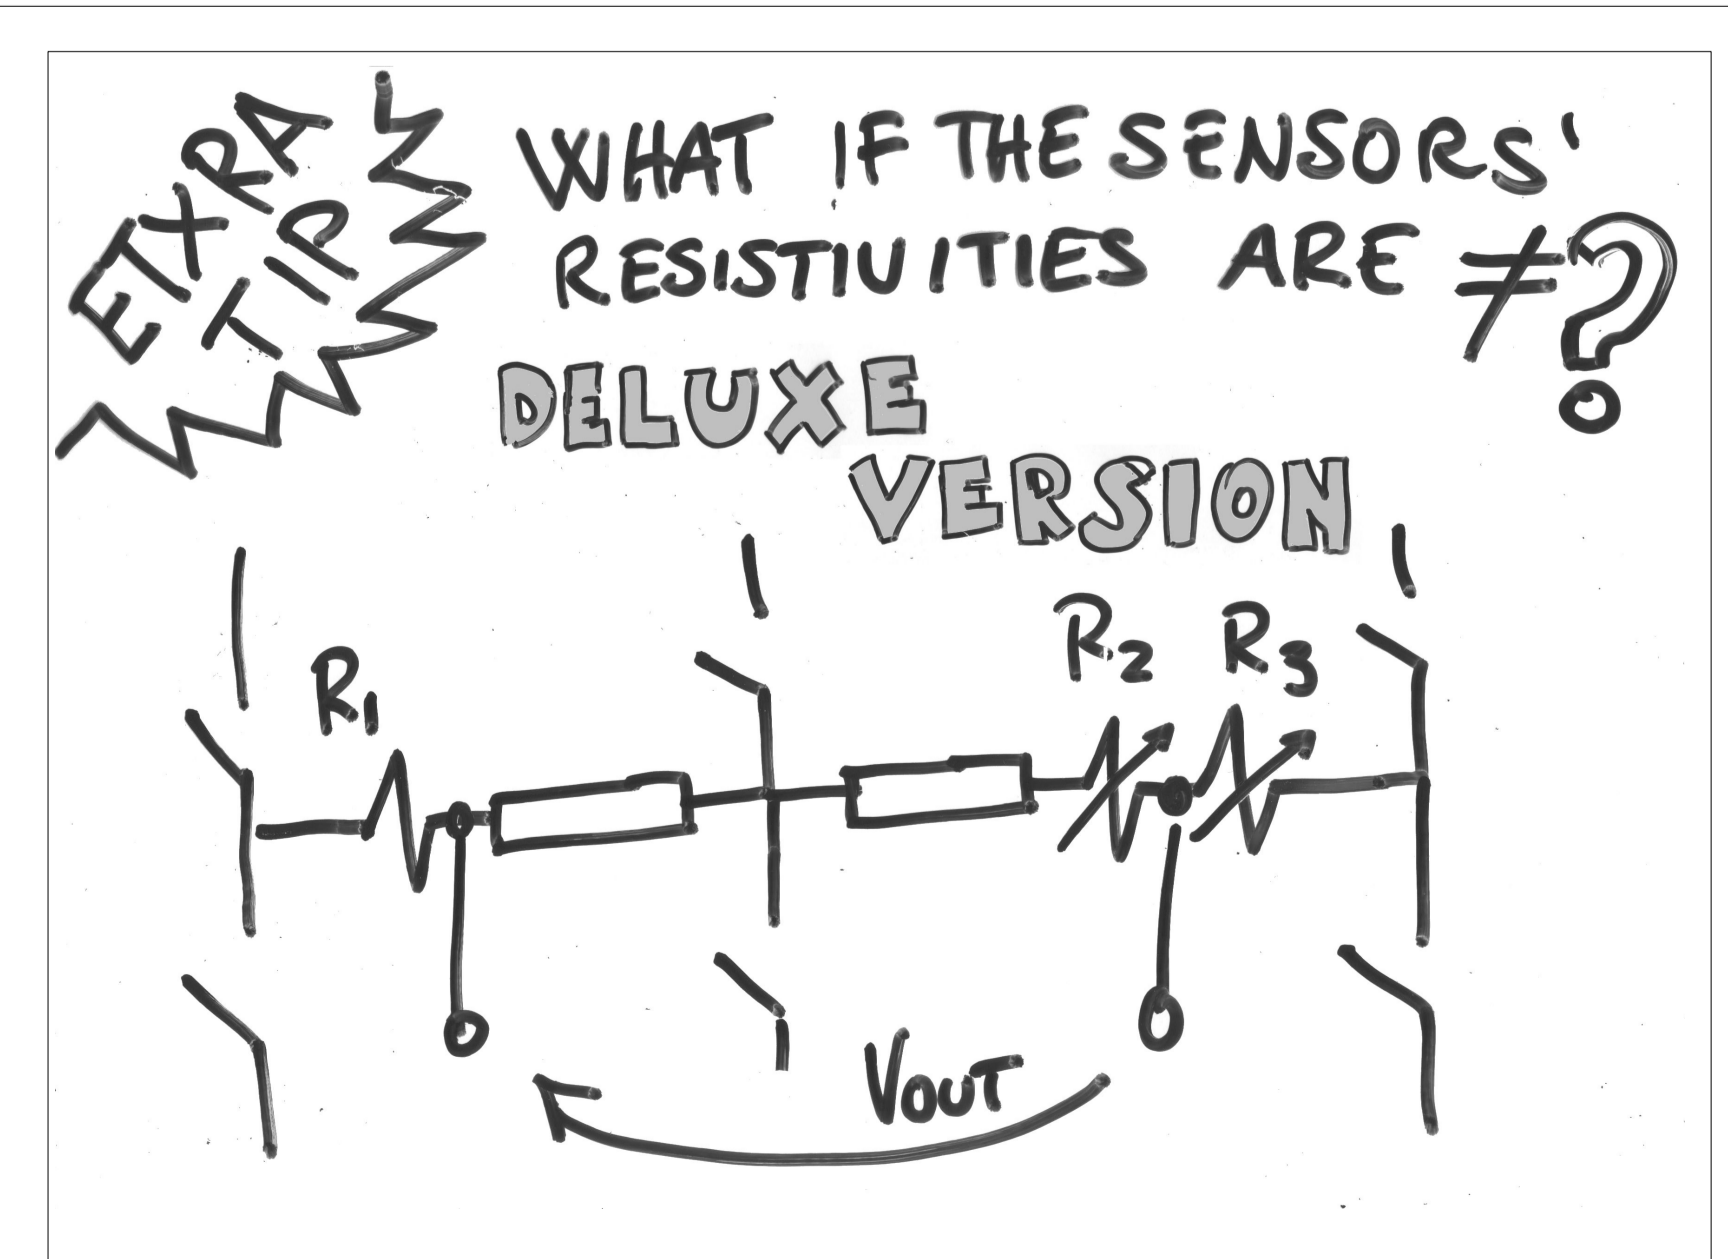 ETXRA
TIP
WHAT IF THE SENSORS'
RESISTIUITIES ARE ≠?
DELUXE
VERSION
R1
R2
R3
VOUT